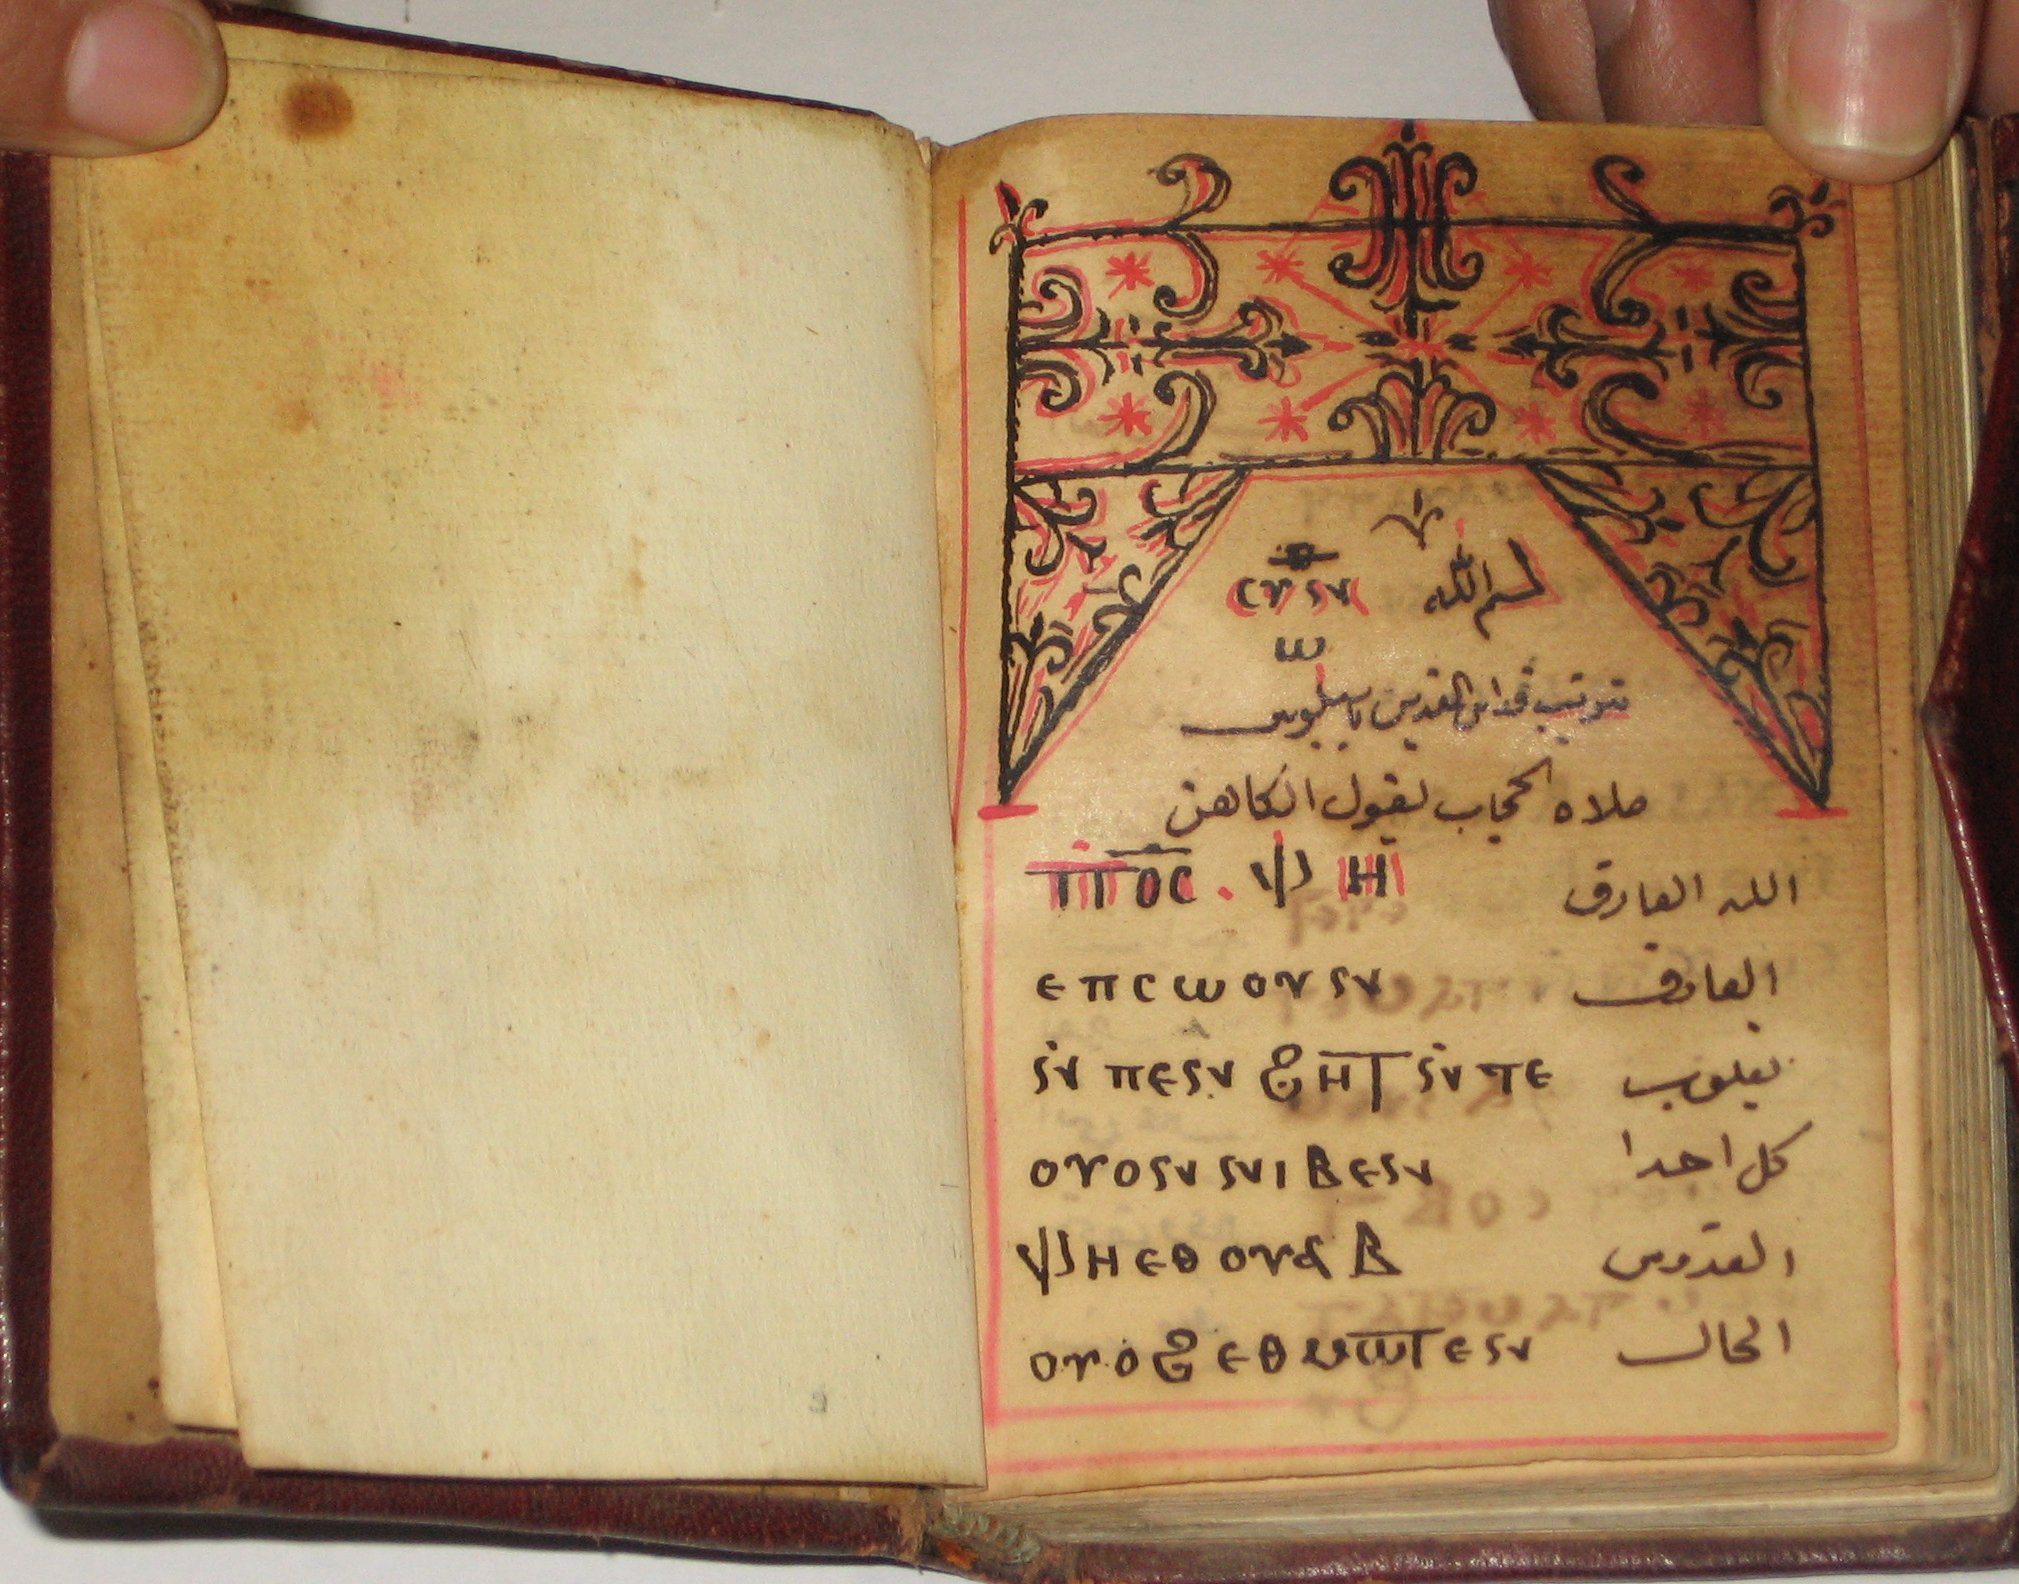 بسم الله ⲥⲩⲛ ⲑ
ⲱ
ترتيب قداس القديس باسيليوس
صلاه الحجاب يقول الكاهن
ⲡ̅ⲟ̅ⲥ̅ . ⲫⲏ الله العارف
ⲉⲡⲥⲱⲟⲩⲛ العارف
ⲛ̇ ⲡⲉⲛ ϩⲏⲧ ⲛ̇ ⲧⲉ بقلوب
ⲟⲩⲟⲛ ⲛⲓⲃⲉⲛ كل احدا
ⲫⲏ ⲉⲑⲟⲩⲁⲃ القدوس
ⲟⲩⲟϩ ⲉⲑⲙⲱⲧⲉⲛ الحال